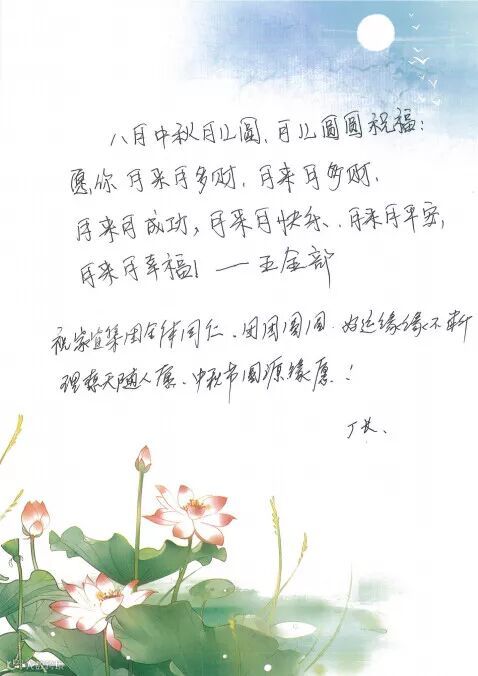 八月中秋月儿圆、月儿圆圆祝福:
愿你月来月多财、月来月够财、
月来月成功，月来月快乐、月来月平安，
月来月幸福! ——五金部
祝家宜集团全体同仁、团团圆圆、好运缘缘不断
理想天随人愿、中秋节圆源缘愿!
丁长、